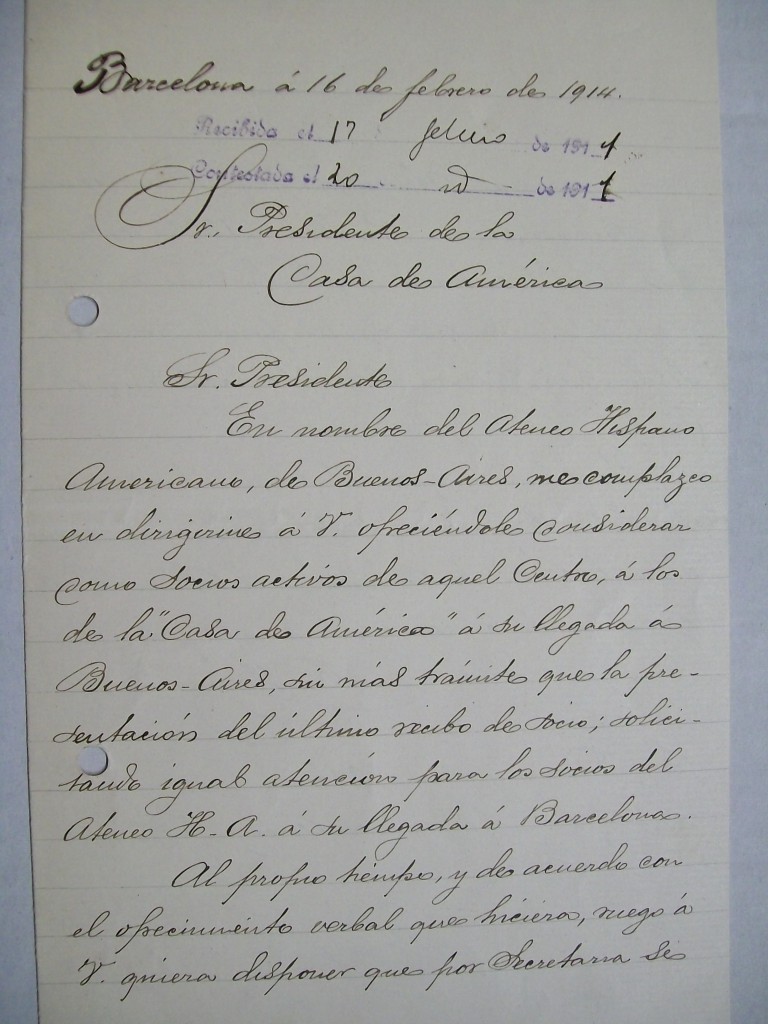 Barcelona á 16 de febrero de 1914.
Recibida el 17 febrero de 1914
Contestada el 20 id de 1914
Sr. Presidente de la
Casa de América
Sr. Presidente
En nombre del Ateneo Hispano
Americano, de Buenos-Aires, me complazco
en dirigirme á V. ofreciéndole considerar
como socios activos de aquel Centro, á los
de la "Casa de América" á su llegada á
Buenos-Aires, sin más trámite que la pre-
sentación del último recibo de socio; solici-
tando igual atención para los socios del
Ateneo H.-A. á su llegada á Barcelona.
Al propio tiempo, y de acuerdo con
el ofrecimiento verbal que hiciera, ruego á
V. quiera disponer que por Secretaria se